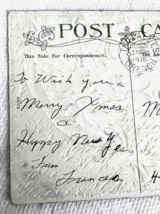 POST CA
This Side for Correspondence.
To Wish you a
Merry Xmas
&
Happy New Year
From
Frances